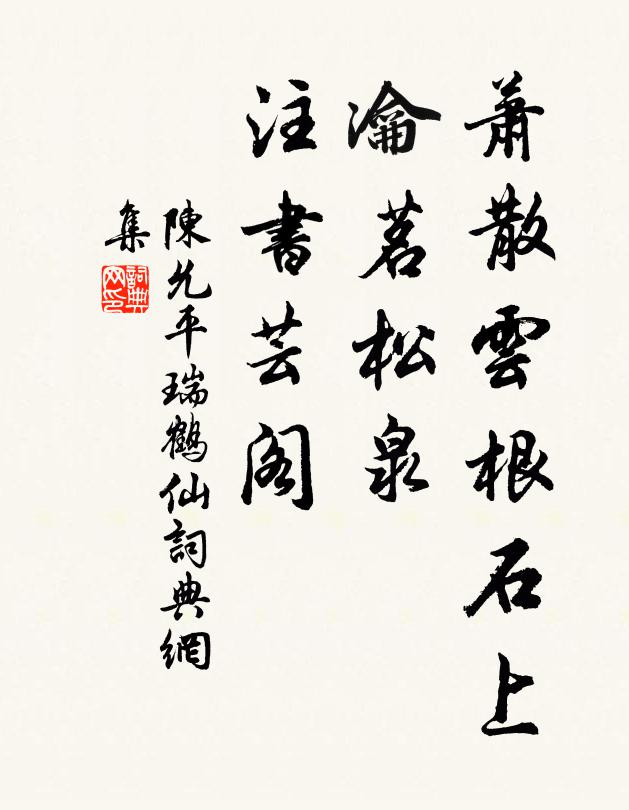 蕭散雲根石上
瀹茗松泉
注書芸閣
陳允平瑞鶴仙詞典網
集
詞典
网印